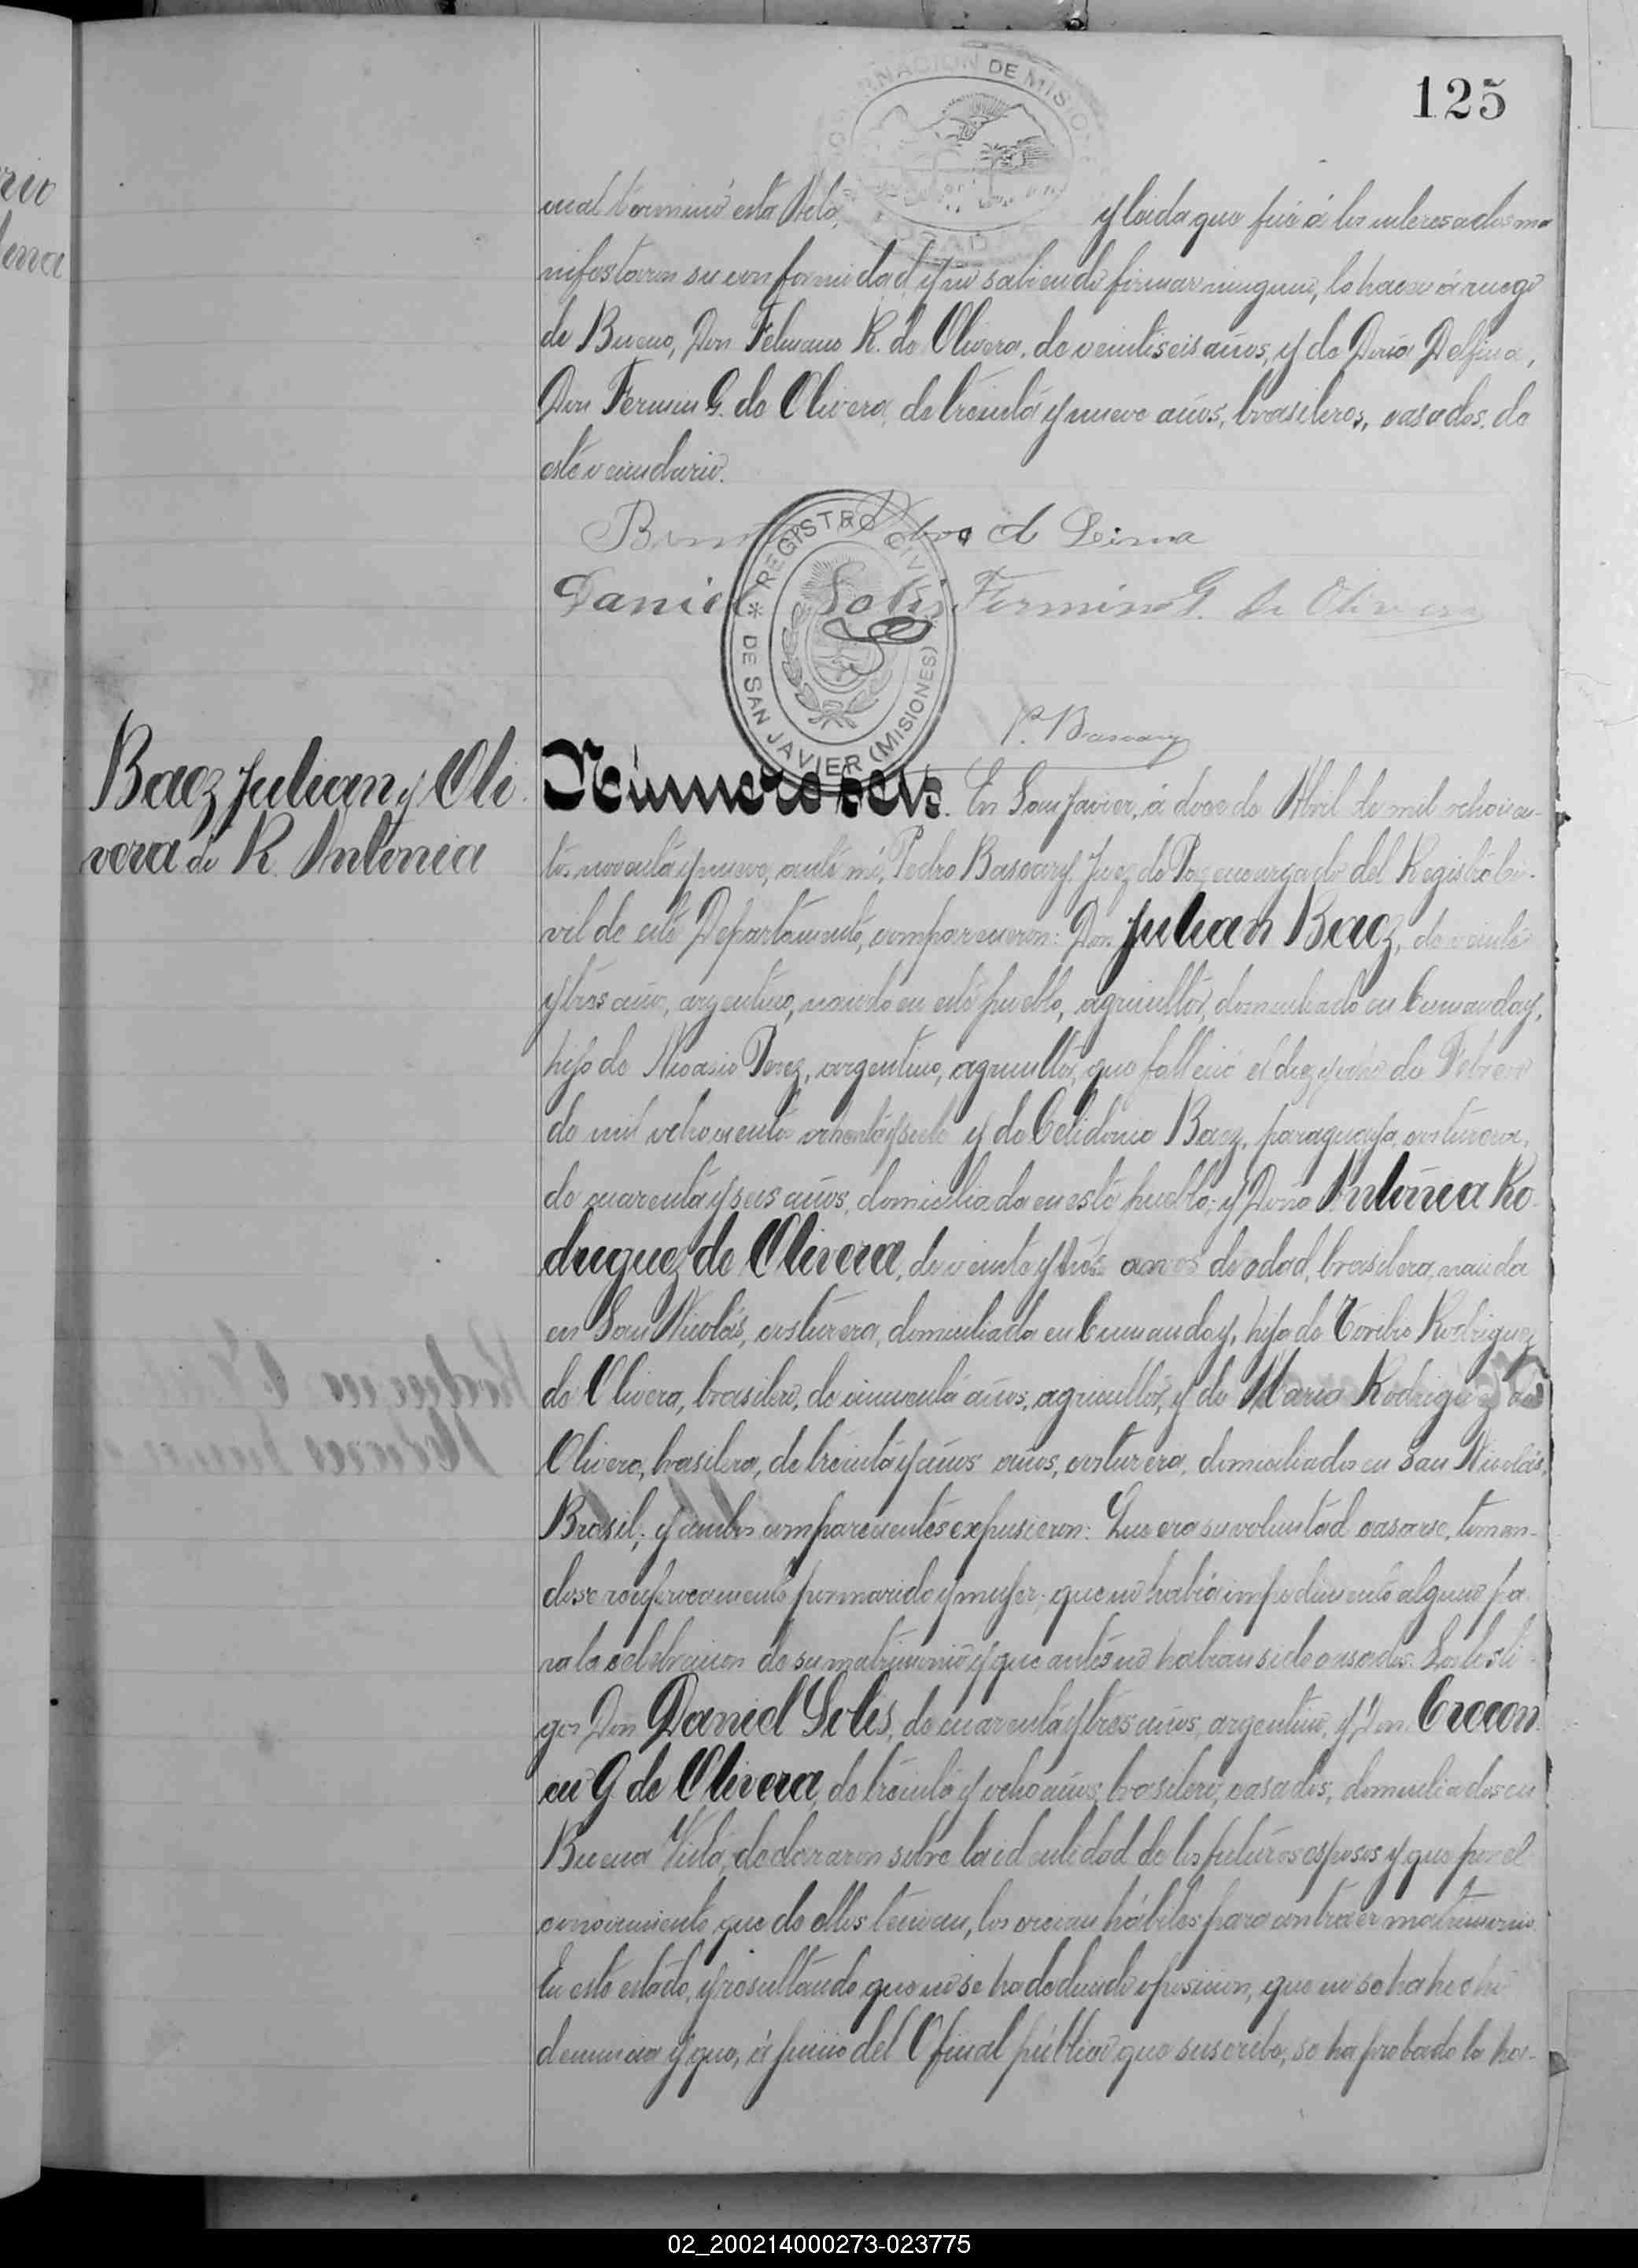 125
GOBERNACION DE MISIONES
POSADAS
cual terminó esta Acta, y leida que fué á los interesados ma
nifestaron su conformidad, y no sabiendo firmar ninguno, lo hacen á ruego
de Bueno, Don Feliciano R. de Olivera, de veintiseis años, y de Doña Delfina,
Don Fermin G. de Olivera, de treinta y nueve años, brasileros, casados, de
este vecindario.
de Lima
Daniel Solis Fermino G. de Olivera
REGISTRO CIVIL
* DE SAN JAVIER (MISIONES)
P. Bascary
Baez Julian y Oli
vera de R. Antonia
Número seis. En San Javier, á doce de Abril de mil ochocien-
tos noventa y nueve, ante mí, Pedro Bascary, Juez de Paz encargado del Registro Ci-
vil de este Departamento, comparecieron: Don Julian Baez, de veinte
y tres años, argentino, nacido en este pueblo, agricultor, domiciliado en Cumanday,
hijo de Nicasio Perez, argentino, agricultor, que falleció el diez y ocho de Febrero
de mil ochocientos ochenta y siete y de Celidonia Baez, paraguaya, costurera,
de cuarenta y seis años, domiciliada en este pueblo; y Doña Antonia Ro
driguez de Olivera, de veinte y tres años de edad, brasilera, nacida
en San Nicolás, costurera, domiciliada en Cumanday, hija de Toribio Rodriguez
de Olivera, brasilero, de cincuenta años, agricultor, y de Maria Rodriguez de
Olivera, brasilera, de treinta y cinco años, costurera, domiciliados en San Nicolás,
Brasil; y ambos comparecientes expusieron: Que era su voluntad casarse, toman-
dose reciprocamente por marido y mujer; que no habia impedimento alguno pa
ra la celebracion de su matrimonio y que antes no habian sido casados. Los testi
gos Don Daniel Solis, de cuarenta y tres años, argentino, y Don Crecen
cio G de Olivera, de treinta y ocho años, brasilero, casados, domiciliados en
Buena Vista, declararon sobre la identidad de los futuros esposos y que por el
conocimiento que de ellos tenian, los creian hábiles para contraer matrimonio.
En este estado, y resultando que no se ha deducido oposicion, que no se ha hecho
denuncia y que, á juicio del Oficial público que suscribe, se ha probado la ha-
02_200214000273-023775